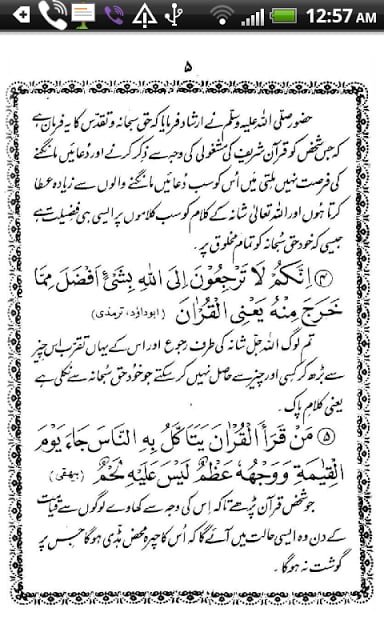 12:57 AM
۵
حضور صلی اللہ علیہ وسلم نے ارشاد فرمایا کہ حق سبحانہ و تقدس کا یہ فرمان ہے
کہ جس شخص کو قرآن شریف کی مشغولی کی وجہ سے ذکر کرنے اور دعائیں مانگنے
کی فرصت نہیں ملتی میں اُس کو سب دعائیں مانگنے والوں سے زیادہ عطا
کرتا ہوں اور اللہ تعالیٰ شانہ کے کلام کو سب کلاموں پر ایسی ہی فضیلت ہے
جیسی کہ خود حق سبحانہ کو تمام مخلوق پر۔
④ اِنَّكُمْ لَا تَرْجِعُوْنَ اِلَى اللهِ بِشَیْءٍ اَفْضَلَ مِمَّا
خَرَجَ مِنْهُ يَعْنِي الْقُرْاٰنَ (ابوداؤد، ترمذی)
تم لوگ اللہ جل شانہ کی طرف رجوع اور اس کے یہاں تقرب اس چیز
سے بڑھ کر کسی اور چیز سے حاصل نہیں کر سکتے جو خود حق سبحانہ سے نکلی ہے
یعنی کلام پاک۔
⑤ مَنْ قَرَأَ الْقُرْاٰنَ يَتَاَكَّلُ بِهِ النَّاسَ جَاءَ يَوْمَ
الْقِيٰمَةِ وَوَجْهُهٗ عَظْمٌ لَيْسَ عَلَيْهِ لَحْمٌ (بیہقی)
جو شخص قرآن پڑھے تاکہ اس کی وجہ سے کھاوے لوگوں سے قیامت
کے دن وہ ایسی حالت میں آئے گا کہ اُس کا چہرہ محض ہڈی ہوگا جس پر
گوشت نہ ہوگا۔